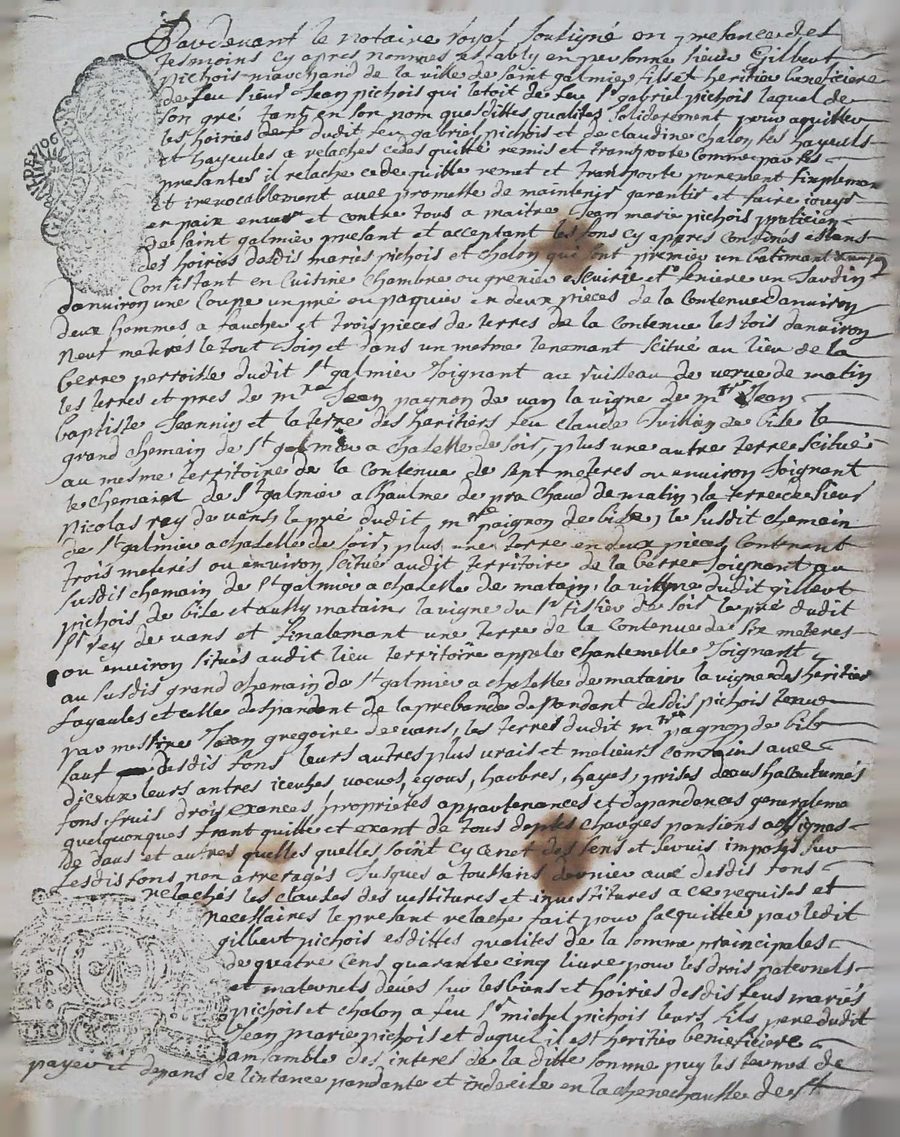 Pardevant le notaire royal soutigné en presance des
tesmoins cy apres nommes establÿ en personne sieur Gilbert
pichois marchand de la ville de saint galmier fils et heritier beneficiere
de feu sieur Jean pichois qui letoit de feu sr gabriel pichois lequel de
son gre tant en son nom que sdittes qualites solidерement pour aquitter
les hoiries desdit feu gabriel pichois et de claudine chalon ses hayeuls
et hayeules a relaches cedes quitté remis et transporte comme par les
presantes il relache cede quitte remet et transporte purement simplemen
et irevocablement avec promette de maintenir garantir et faire jouyr
en paix envers et contre tous a maitre Jean marie pichois praticien
de saint galmier presant et acceptant les fons cy apres confinés estans
des hoiries desdis mariés pichois et chalon qui sont premier un batiment
Consistant en Cuisine Chambre ou grenier escuirie et feniere un Jardin
danviron une Coupe un pré ou paquier en deux pieces de la contenue danviron
deux hommes a faucher et trois pieces de terres de la contenue les tois danviron
neuf meterés le tout Join et dans un mesme tenemant scitué au lieu de la
berre perroisse dudit St galmier Joignant au ruisseau de verue de matin
les terres et pres de mre Jean pagnon de van la vigne de mtre Jean
baptiste Jeannin et la terre des heritiers feu claude Juillien de bise le
grand chemain de St galmier a chatelle de soir, plus une autre terre scitué
au mesme territoire de la contenue de sept meteres ou environ Joignant
le chemain de St galmier a lhaulme de pra chaud de matin, la terre de sieur
Nicolas rey de vans, le pré dudit mre paignon de bise, le susdit chemain
de St galmier a chazelle de soir, plus une terre en deux pieces, Contenant
trois meterés ou environ scitué audit territoire de la berre Joignant au
susdis chemain de St galmier a chazelle de matain, la vigne dudit gilbert
pichois de bise et aussy matain la vigne du sr tissier de soir le pré dudit
sr rey de vans et finalemant une terre de la contenue de six meteres
ou environ situés audit lieu territoire appele chantemelle Joignant
au susdis grand chemain de St galmier a chazelle de matain la vigne des heritiers
fayeules et celle despandent de la prebande depandant desdis pichois tenue
par messire Jean gregoire de vans, les terres dudit mtre pagnon de bise
sauf desdis fons leurs autres plus vrais et melieurs confins avec
diceux leurs antres iceulxes, vacues, egous, harbres, hayes, prises deaus hacoutumés
fons fruis drois exances proprietes appartenances et depandances generalema
quelquonques frant quitte et exant de tous deptes charges pansions assignas
de daus et autres quelles quelles soint cy ce net des sens et servis imposes sur
lesdis fons non arrerages Jusques a toussans dernier avec desdis fons
relachés les clauses des vestitures et investitures a ce requises et
necessaires le presant relache fait pour sacquitter par ledit
gilbert pichois esdittes qualites de la somme prainsipales
de quatre cens quarante cinq livre pour les drois paternels
et maternels deues sur les biens et hoiries desdis feus mariés
pichois et chalon a feu sr michel pichois leurs fils pere dudit
Jean marie pichois et duquel il est heritier beneficiere
damsamble des interes de la ditte somme puy les termes de
payer et depans de lintance pandante et indecise en la chenechaussée de St